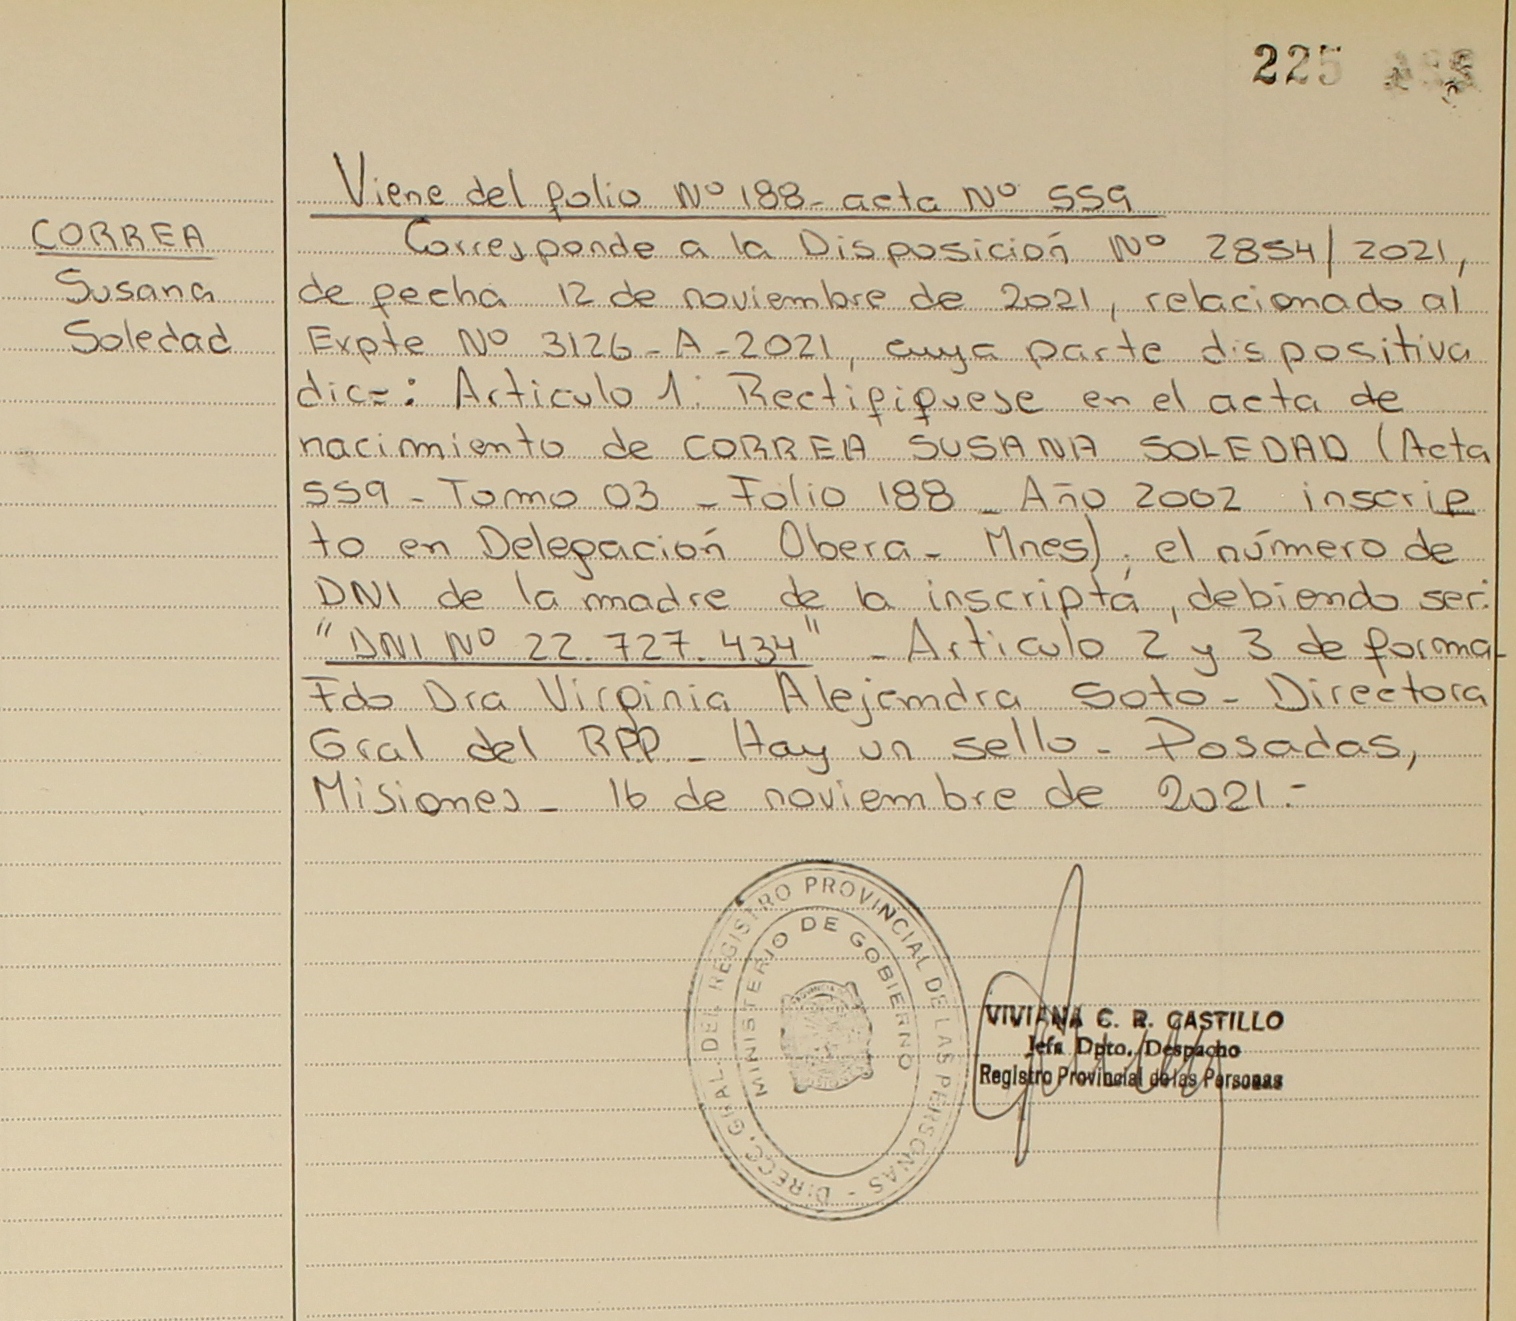 225
Viene del folio Nº 188- acta Nº 559
CORREA
Susana
Soledad
Corresponde a la Disposición Nº 2854/2021,
de fecha 12 de noviembre de 2021, relacionado al
Expte Nº 3126-A-2021, cuya parte dispositiva
dice: Articulo 1: Rectifiquese en el acta de
nacimiento de CORREA SUSANA SOLEDAD (Acta
559 - Tomo 03 - Folio 188 - Año 2002 inscrip
to en Delegación Obera - Mnes), el número de
DNI de la madre de la inscripta, debiendo ser:
"DNI Nº 22.727.434" - Articulo 2 y 3 de forma-
Fdo Dra Virginia Alejandra Soto - Directora
Gral del RPP - Hay un sello - Posadas,
Misiones - 16 de noviembre de 2021.-
DIRECC. GRAL. DEL REGISTRO PROVINCIAL DE LAS PERSONAS -
MINISTERIO DE GOBIERNO
VIVIANA C. R. CASTILLO
Jefa Dpto. Despacho
Registro Provincial de las Personas